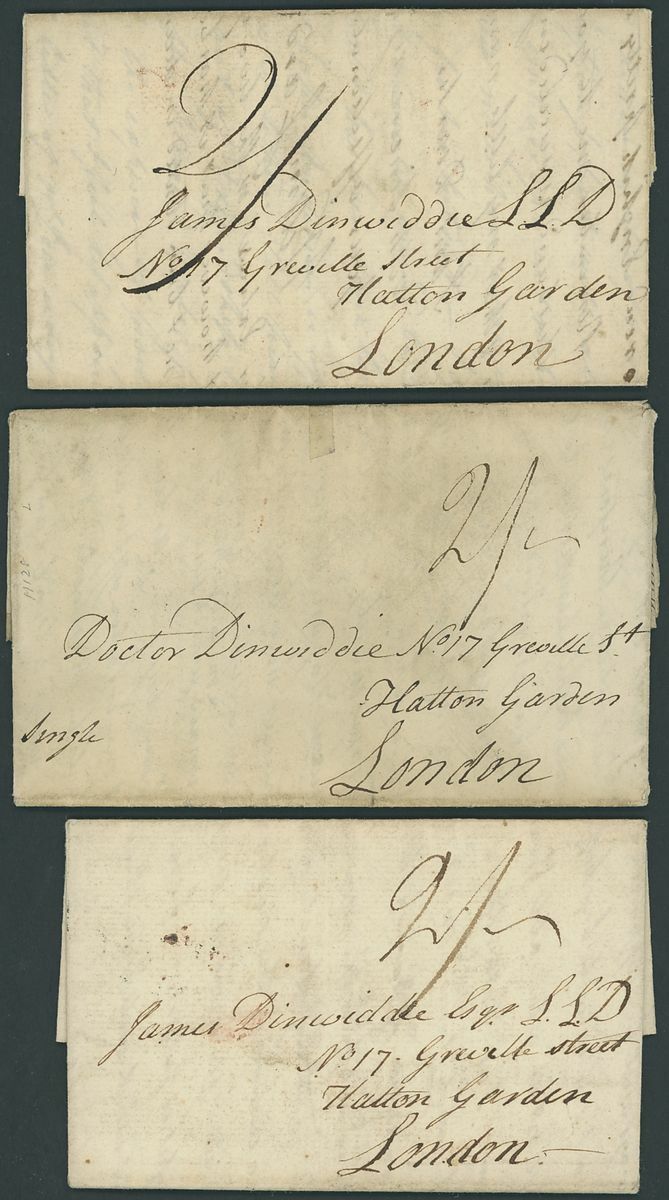 2/
James Dinwiddie L L D
No 17 Greville Street
Hatton Garden
London
2/-
Doctor Dinwiddie No 17 Greville St
Hatton Garden
Single
London
2/-
James Dinwiddie Esqr L. L. D
No 17. Greville street
Hatton Garden
London